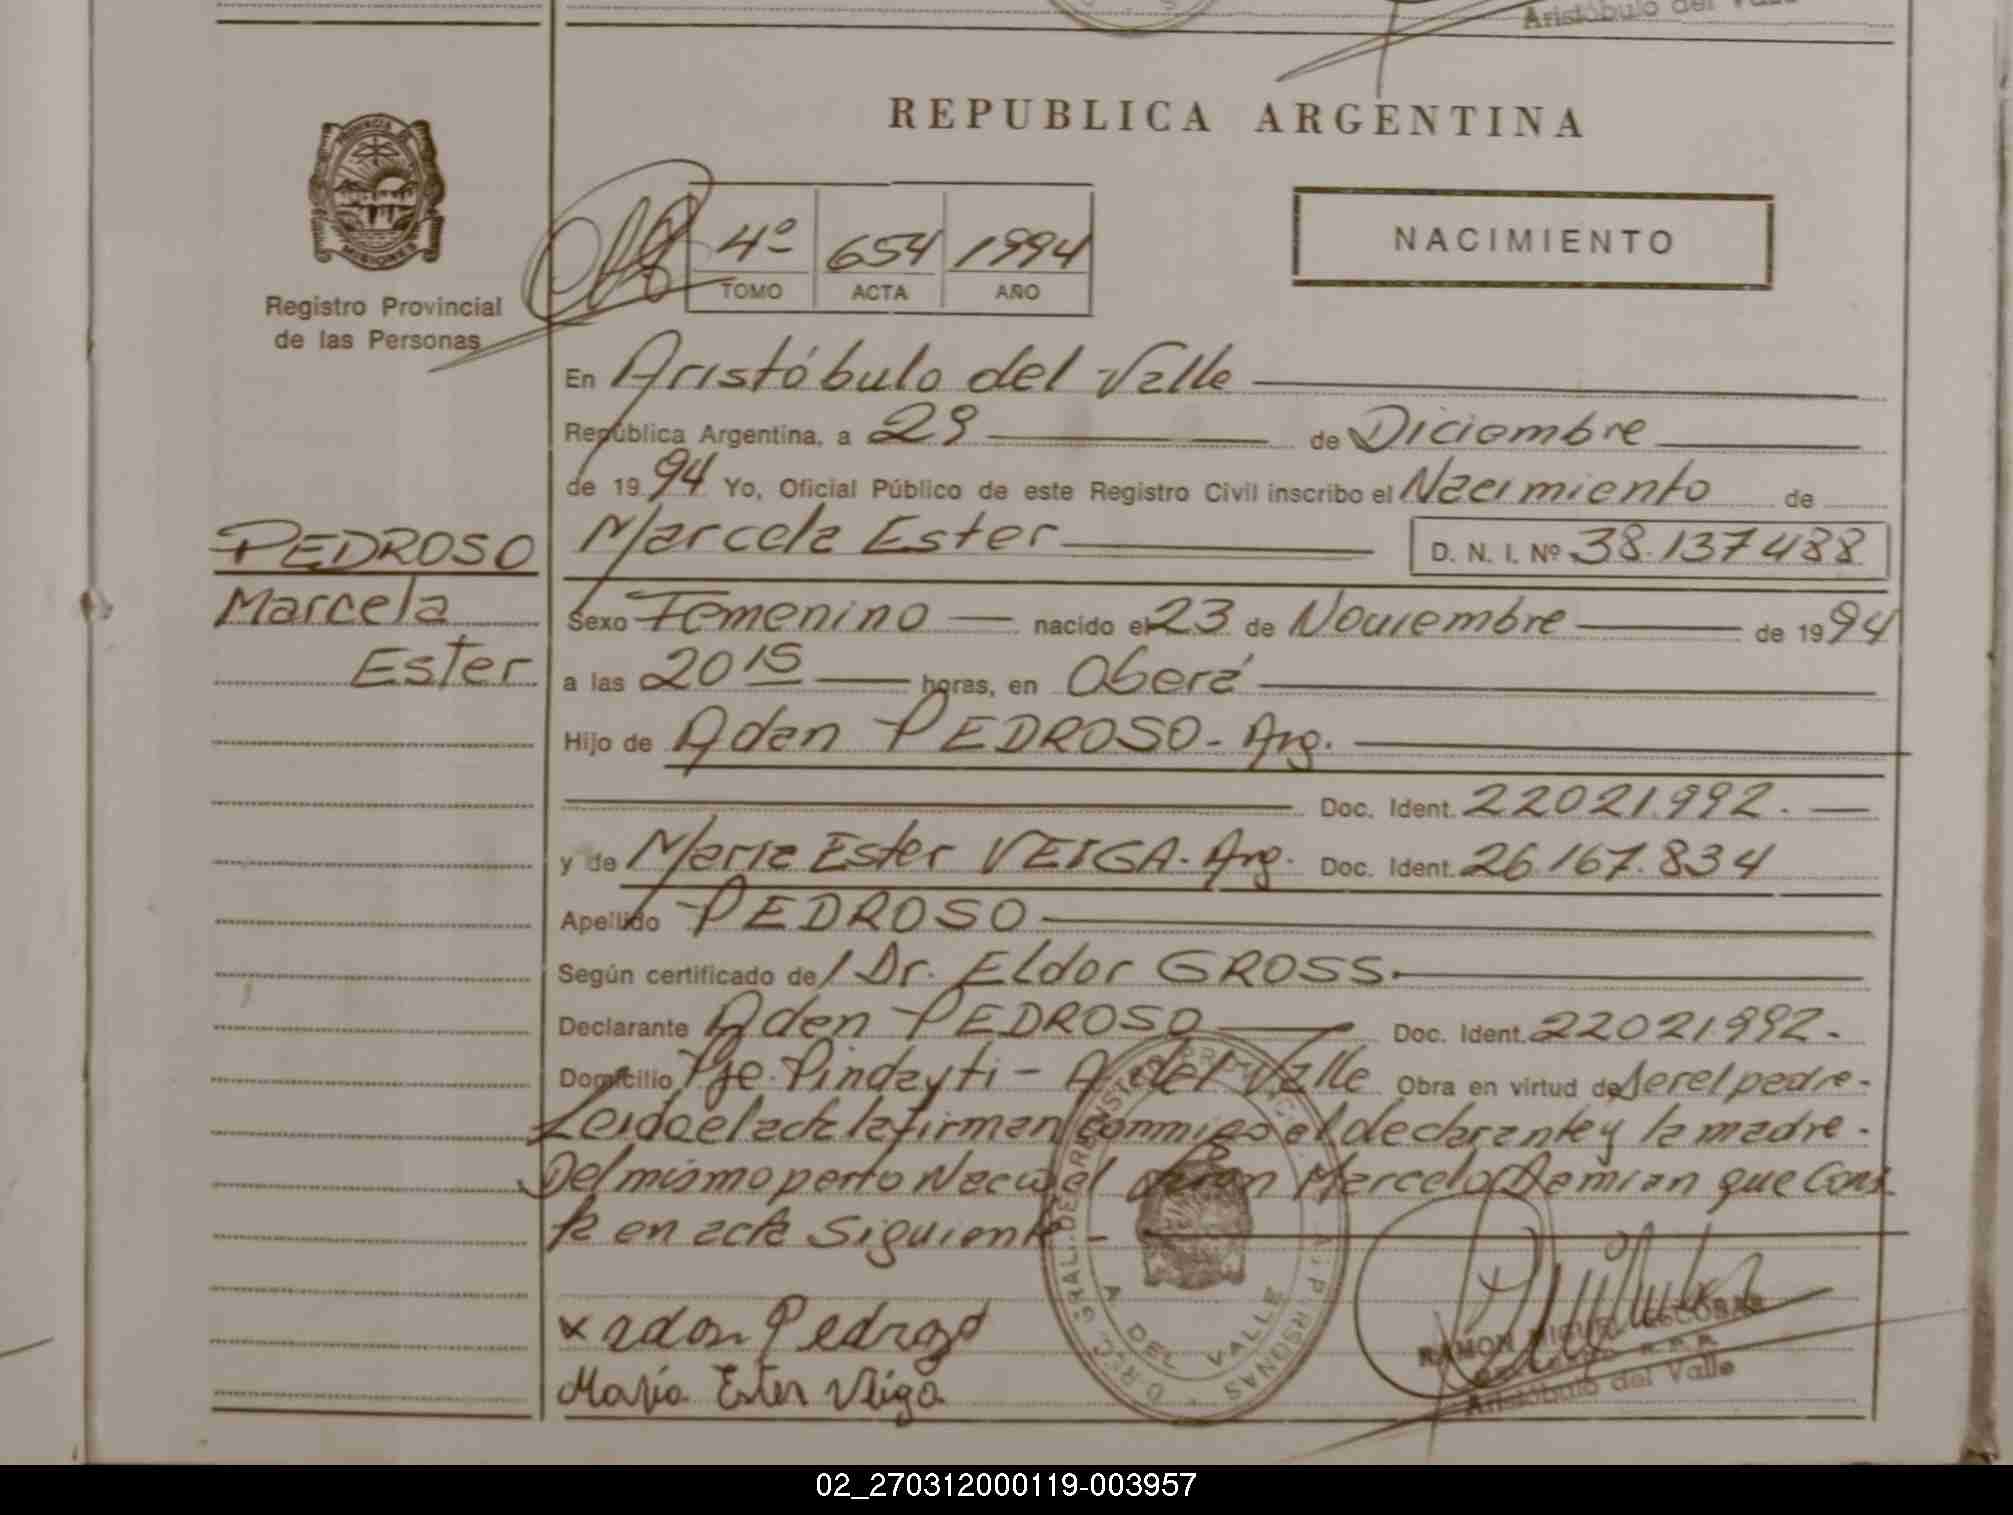 Aristóbulo del Valle
REPUBLICA ARGENTINA
PROVINCIA DE
MISIONES
Registro Provincial
de las Personas
4º 654 1994
TOMO ACTA AÑO
NACIMIENTO
En Aristóbulo del Valle
República Argentina, a 29 de Diciembre
de 1994 Yo, Oficial Público de este Registro Civil inscribo el Nacimiento de
PEDROSO
Marcela
Ester
Marcela Ester D. N. I. Nº 38.137488
Sexo Femenino nacido el 23 de Noviembre de 1994
a las 20 15 horas, en Oberá
Hijo de Adan PEDROSO - Arg.
Doc. Ident. 22021.992.
y de Maria Ester VEIGA - Arg. Doc. Ident. 26.167.834
Apellido PEDROSO
Según certificado de / Dr. Eldor GROSS.
Declarante Adan PEDROSO Doc. Ident. 22021992.
Domicilio Pje. Pindayti - A. del Valle Obra en virtud de ser el padre.
Leida el acta la firman conmigo el declarante y la madre.
Del mismo parto Nacio el Marcelo Damian que cons
ta en acta siguiente
x adan Pedrozo
Maria Ester Veiga
A. DEL VALLE
RAMON MIGUEL ESCOBAR
Aristóbulo del Valle
02_270312000119-003957